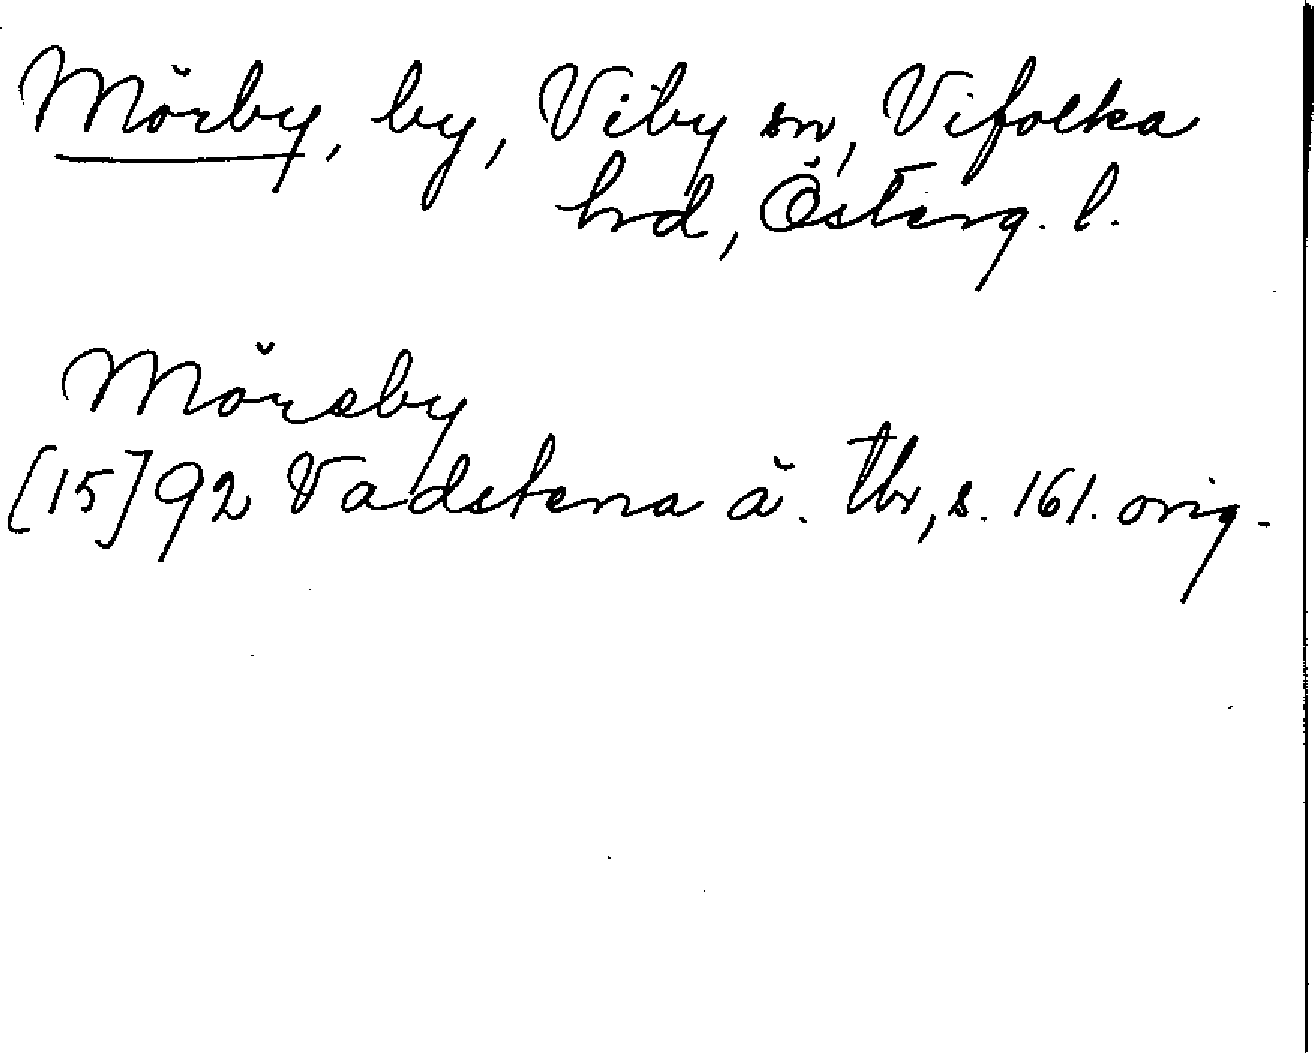 Mörby, by, Viby sn, Vifolka
hrd, Österg. l.
Mörsby
[15]92 Vadstena ä. tbr, s. 161. orig.